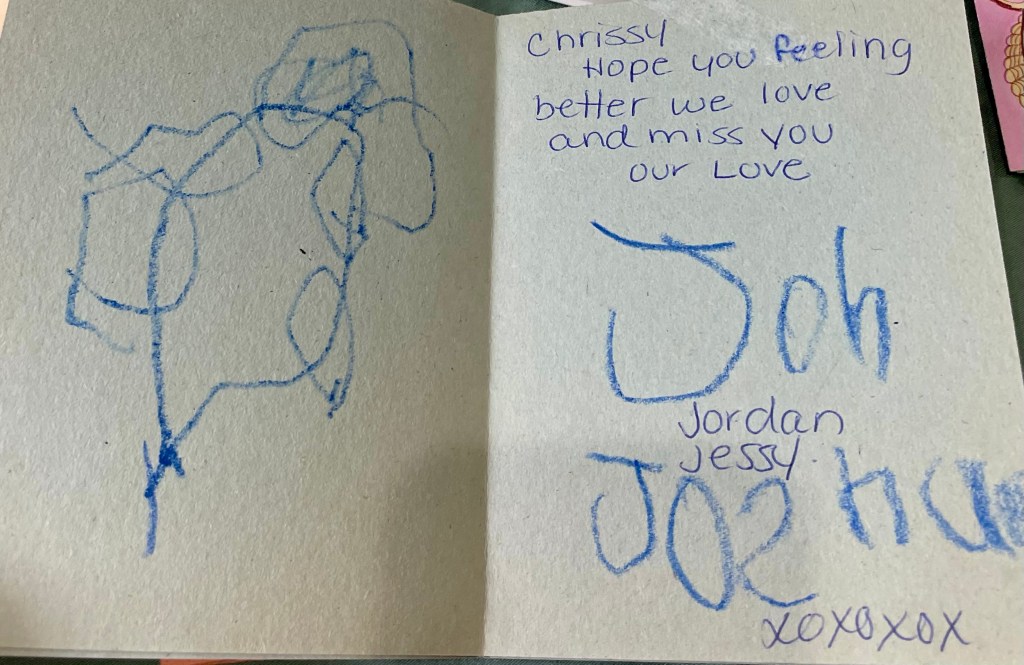 Chrissy
Hope you feeling
better we love
and miss you
our Love
Joh
Jordan
Jessy.
JOShUa
XOXOXOX